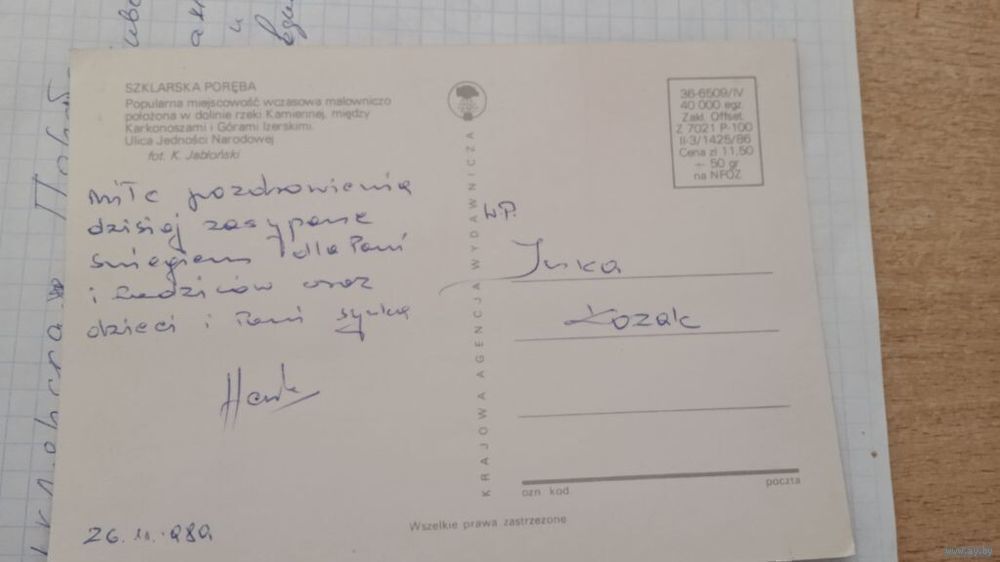 SZKLARSKA PORĘBA
Popularna miejscowość wczasowa malowniczo
położona w dolinie rzeki Kamiennej, między
Karkonoszami i Górami Izerskimi.
Ulica Jedności Narodowej
fot. K. Jabłoński
miłe pozdrowienia
dzisiaj zasypane
śniegiem dla Pani
i Rodziców oraz
dzieci i Pani synka
26. 11.
KRAJOWA AGENCJA WYDAWNICZA
36-6509/IV
40 000 egz.
Zakł. Offset.
Z 7021 P-100
II-3/1425/86
Cena zł 11,50
+ 50 gr
na NFOZ
W.P.
Inka
Kozak
ozn. kod.
poczta
Wszelkie prawa zastrzeżone
www.ay.by